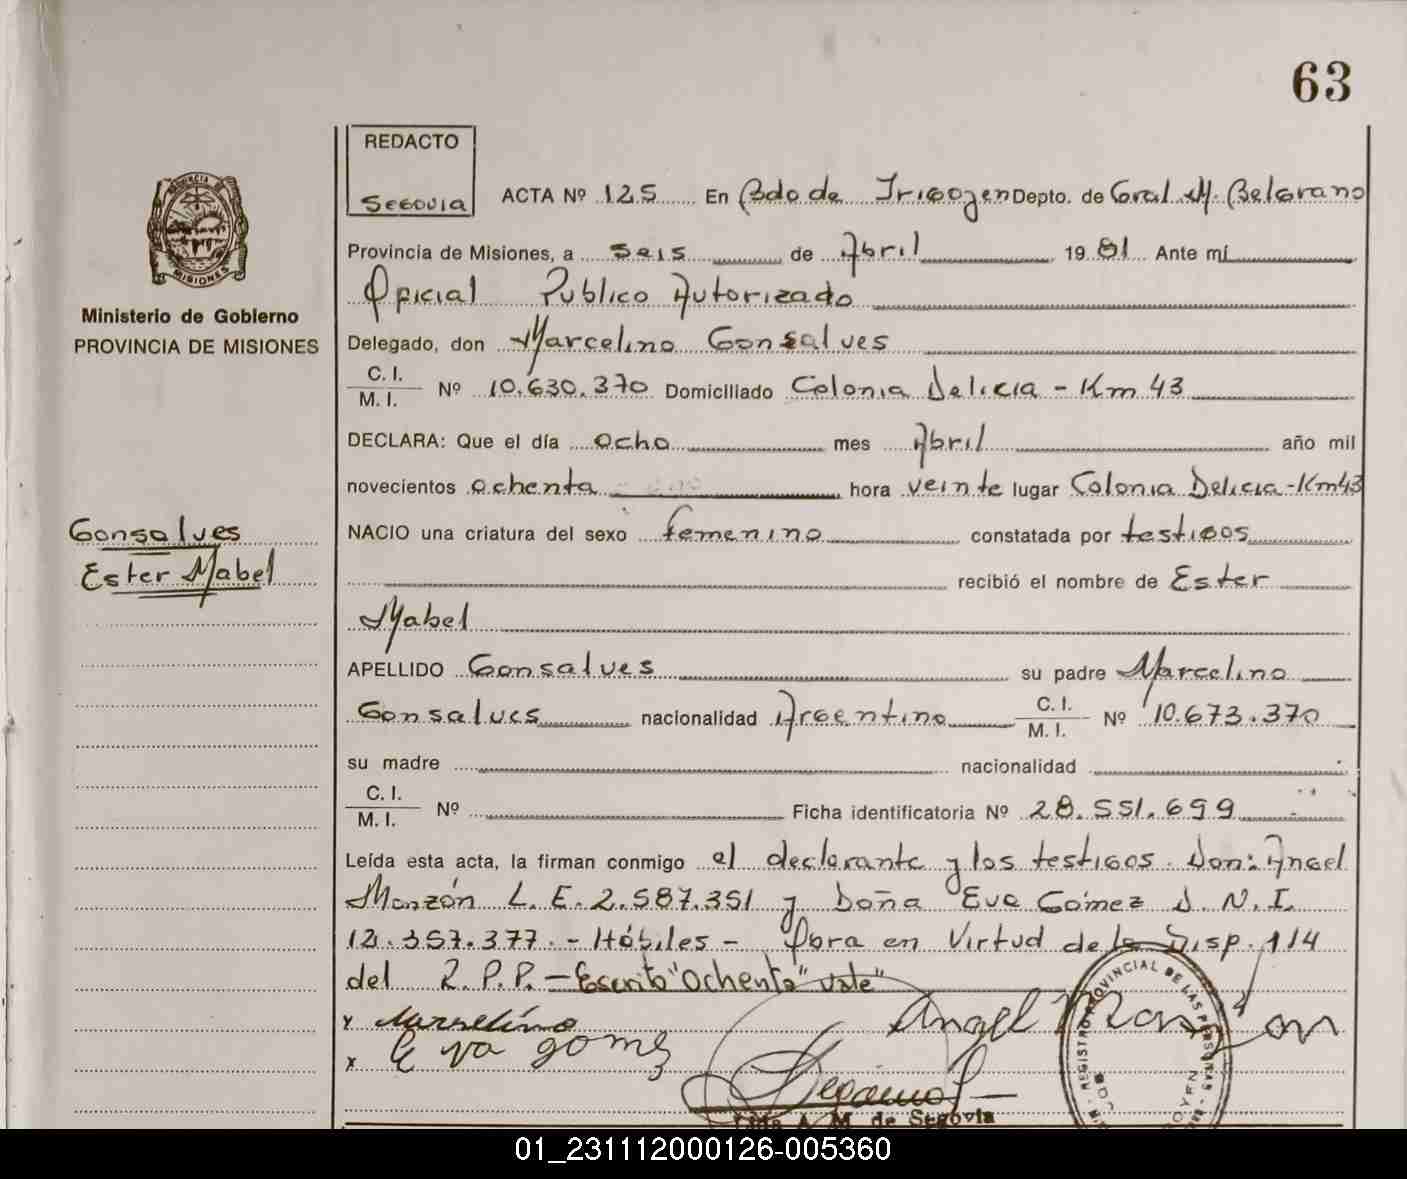 63
REDACTO
SEGOVIA
ACTA Nº 125 En Bdo de Irigoyen Depto. de Gral. M. Belgrano
Provincia de Misiones, a seis de Abril 1981 Ante mí
Oficial Publico Autorizado
Ministerio de Gobierno
PROVINCIA DE MISIONES
Delegado, don Marcelino Gonsalves
C. I.
M. I. Nº 10.630.370 Domiciliado Colonia Delicia - Km 43
DECLARA: Que el día ocho mes Abril año mil
novecientos ochenta hora veinte lugar Colonia Delicia - Km 43
Gonsalves
Ester Mabel
NACIO una criatura del sexo femenino constatada por testigos
recibió el nombre de Ester
Mabel
APELLIDO Gonsalves su padre Marcelino
Gonsalves nacionalidad Argentino C. I.
M. I. Nº 10.673.370
su madre nacionalidad
C. I.
M. I. Nº Ficha identificatoria Nº 28.551.699
Leída esta acta, la firman conmigo el declarante y los testigos. Don: Angel
Monzón L. E. 2.587.351 y Doña Eva Gómez D. N. I.
12.357.377. - Hábiles - Obra en Virtud de la Disp. 114
del R. P. P. - Escrito "Ochenta" vale"
x Marselino
Angel Monzon
x Eva gomez
A. M. de Segovia
REGISTRO PROVINCIAL DE LAS PERSONAS
01_231112000126-005360